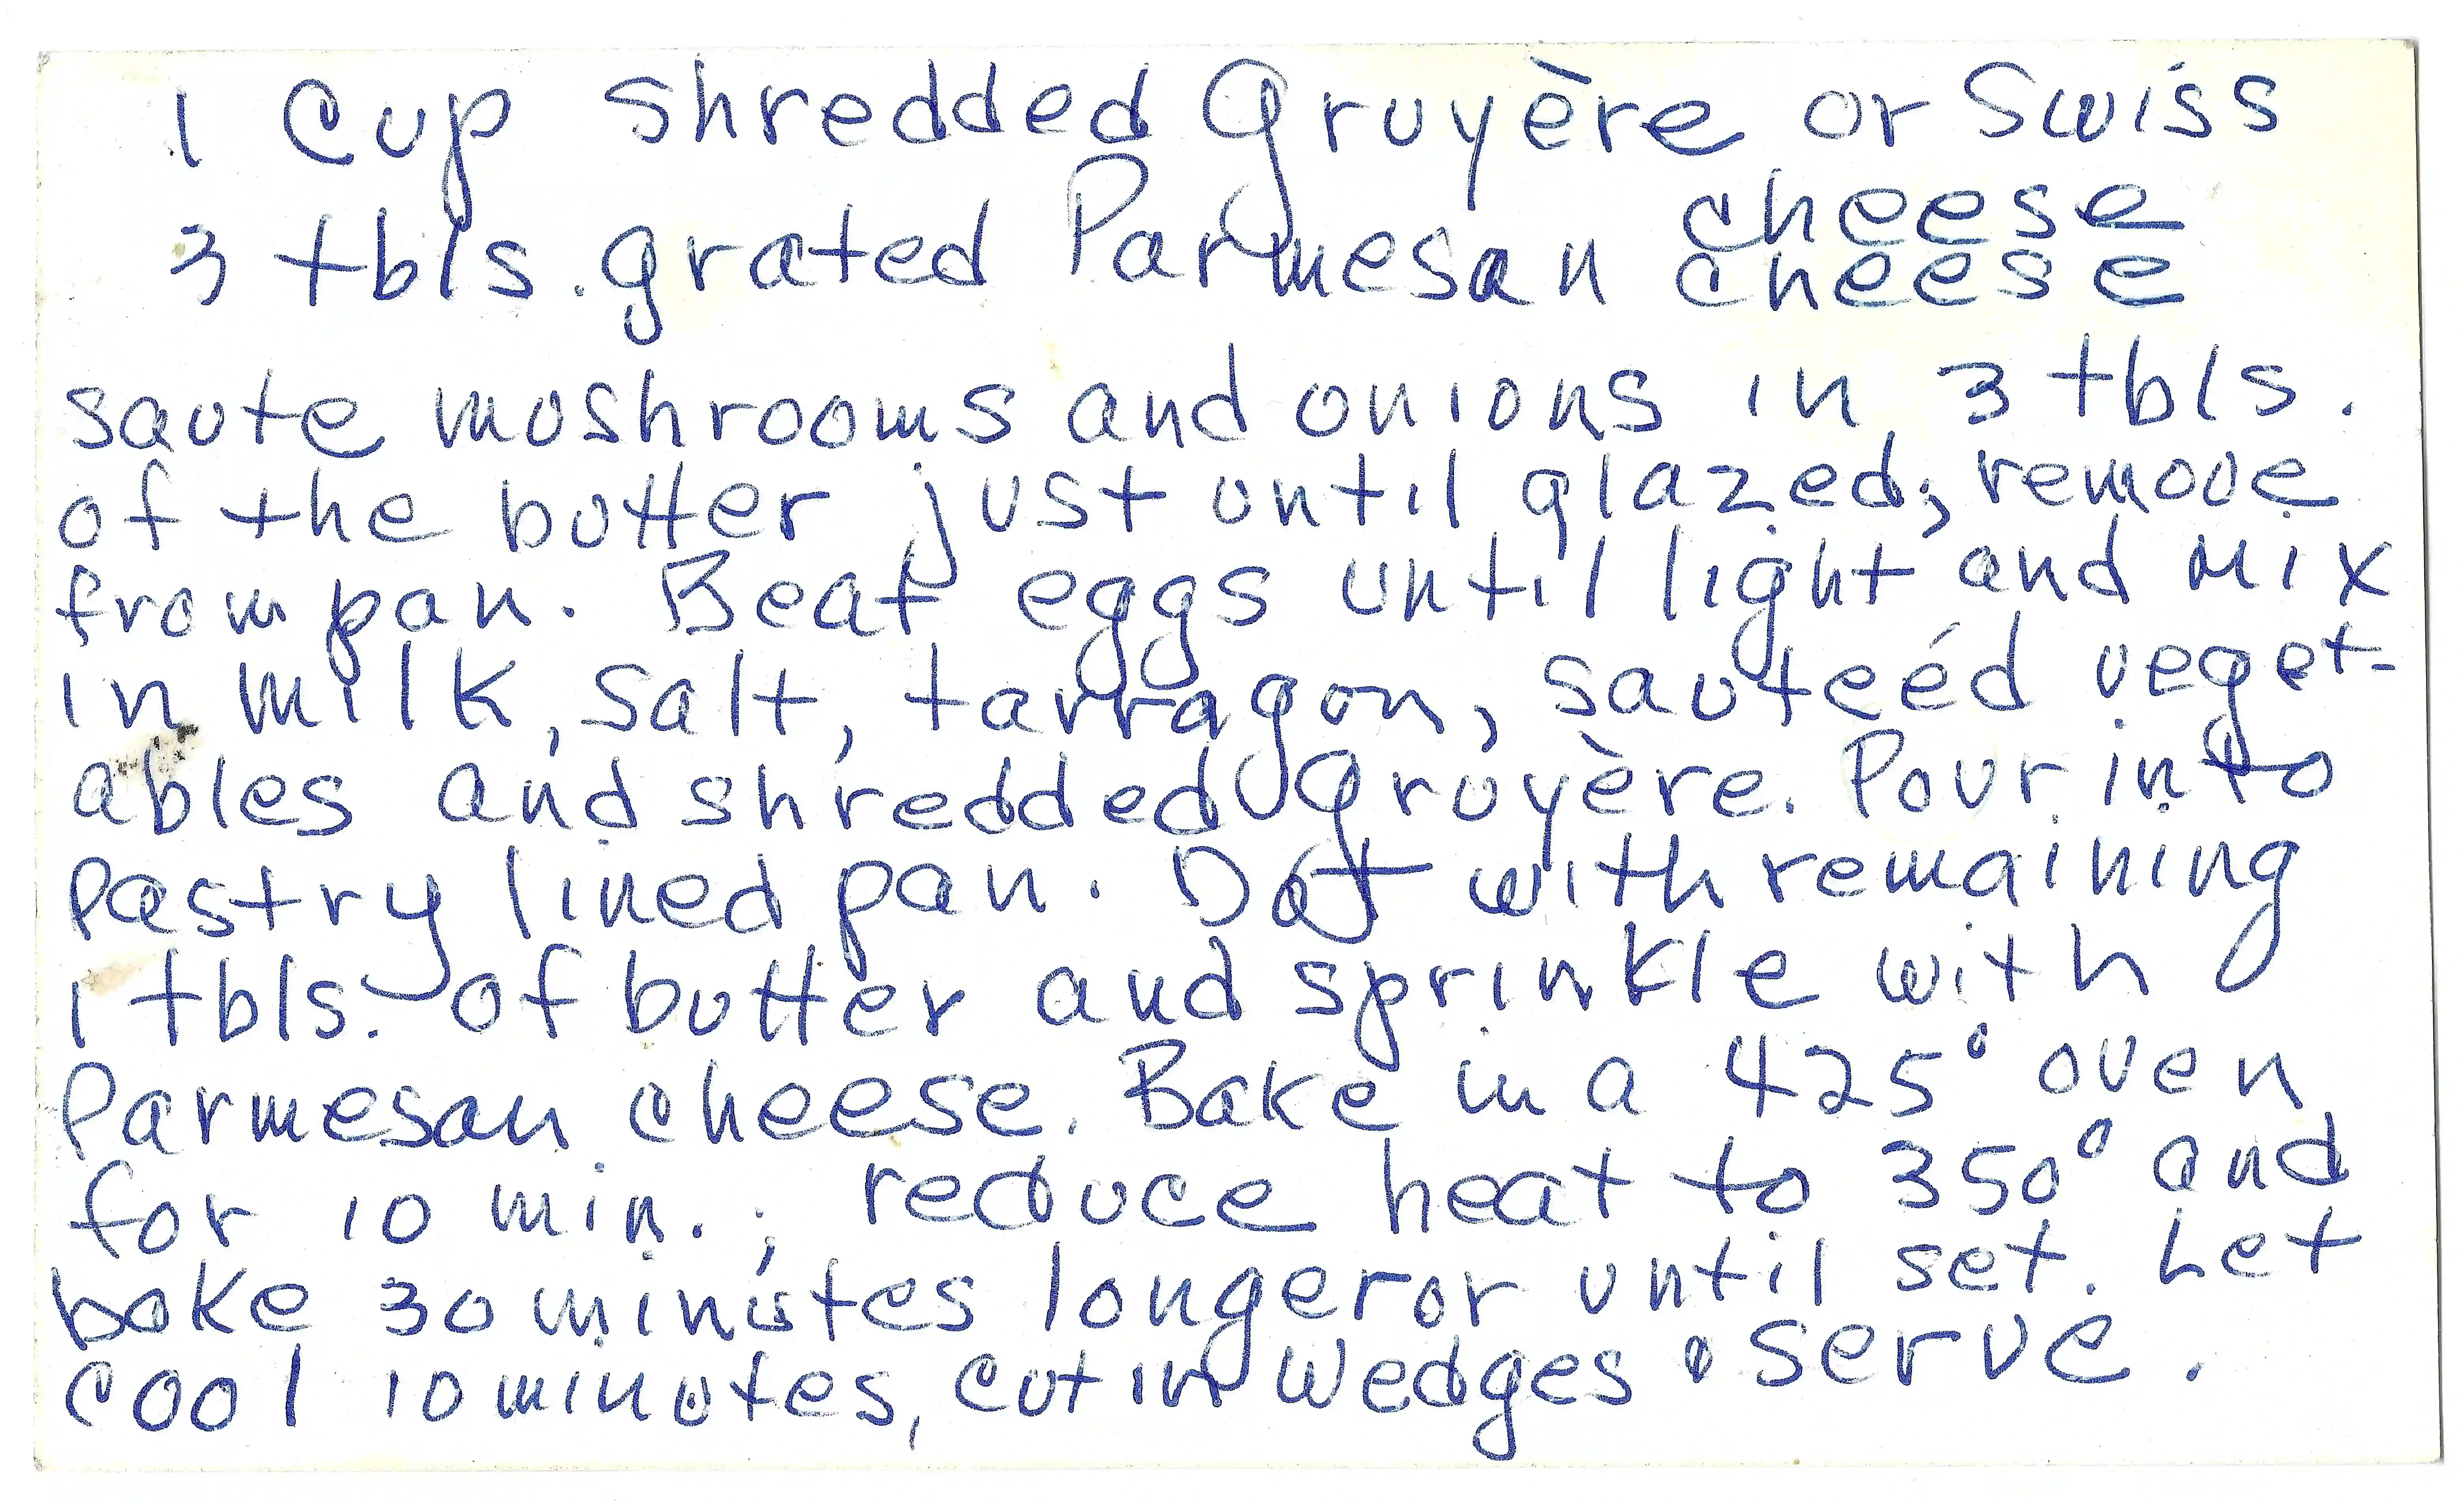 1 Cup shredded Gruyère or Swiss
cheese
3 tbls. grated Parmesan cheese
saute mushrooms and onions in 3 tbls.
of the butter just until glazed; remove
from pan. Beat eggs until light and mix
in milk, salt, tarragon, sauteéd veget-
ables and shredded Gruyère. Pour into
pastry lined pan. Dot with remaining
1 tbls. of butter and sprinkle with
Parmesan cheese. Bake in a 425° oven
for 10 min.; reduce heat to 350° and
bake 30 minutes longer or until set. Let
cool 10 minutes, cut in wedges & serve.